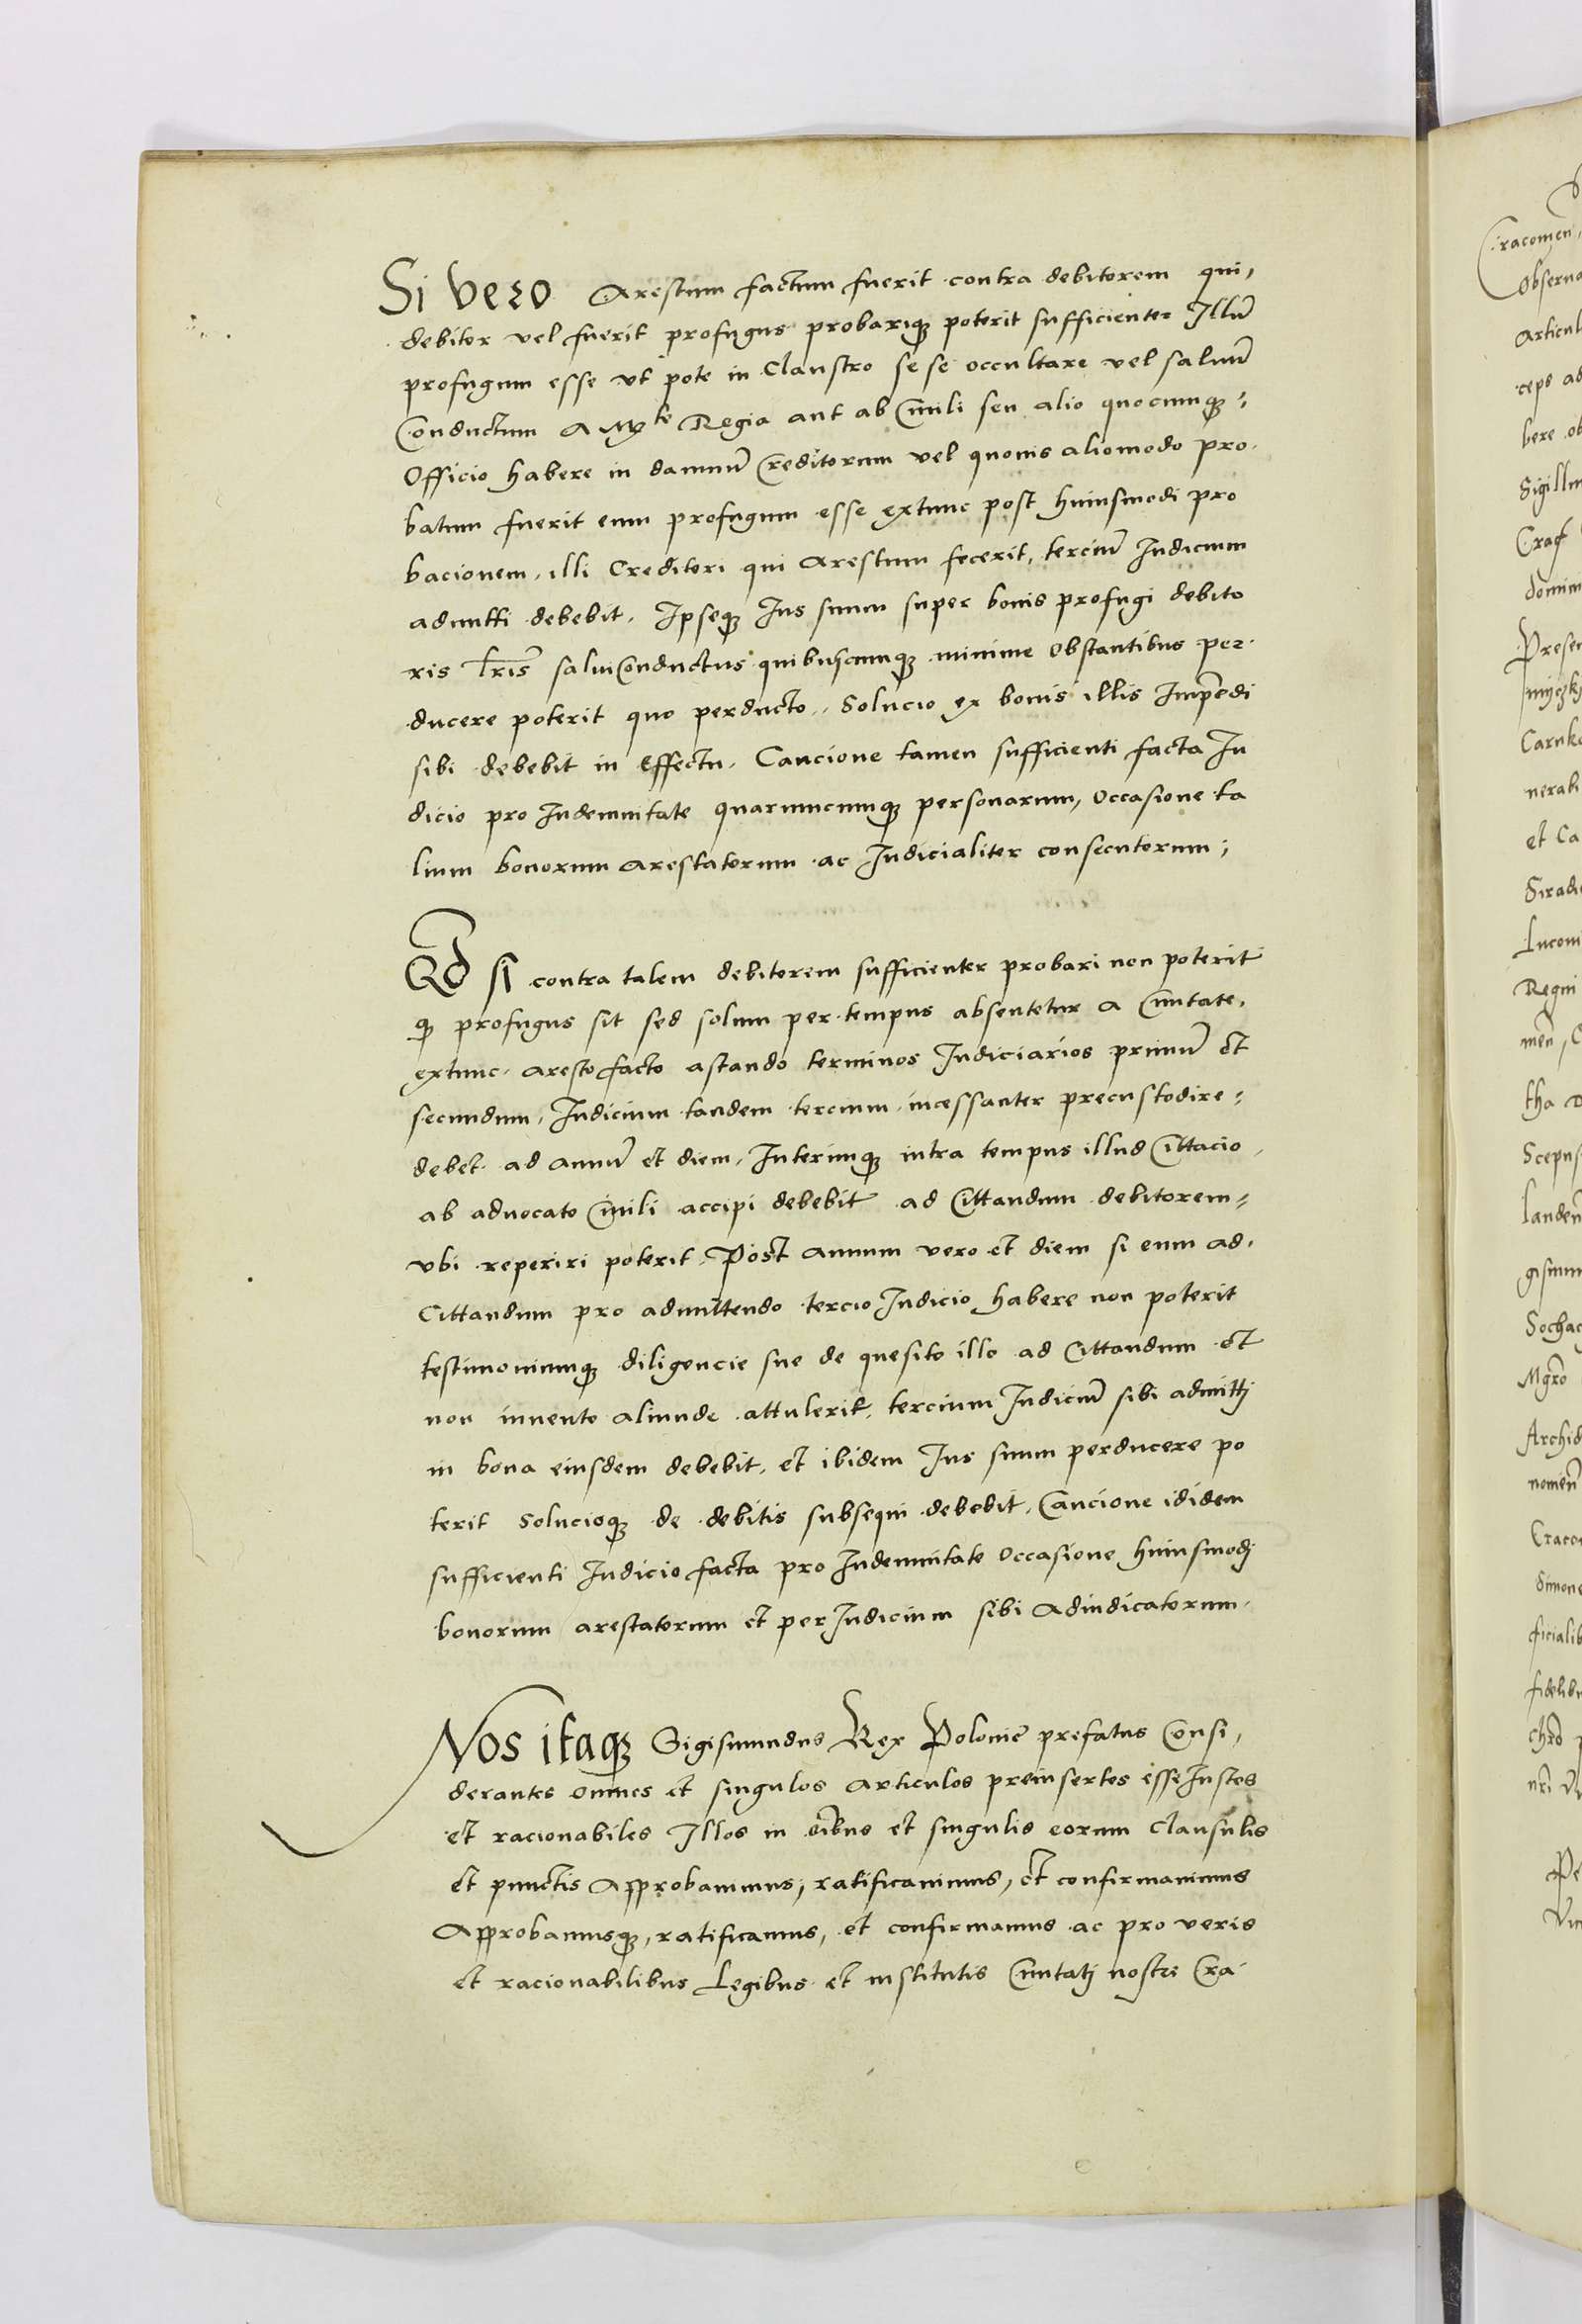 Si vero Arestum factum fuerit contra debitorem qui,
debitor vel fuerit profugus probariqȝ poterit sufficienter Illū
profugum esse ut pote in Claustro sese occultare vel saluū
Conductum A Mte Regia aut ab Ciuili seu alio quocumqȝ
Officio habere in damnū Creditorum vel quouis aliomodo pro
batum fuerit eum profugum esse extunc post huiusmodi pro
bacionem, illi Creditori qui Arestum fecerit, terciū Iudicium
admitti debebit, Ipseqȝ Ius suum super bonis profugi debito
ris lris saluiconductus quibuscumqȝ minime obstantibus per
ducere poterit quo perducto, Solucio ex bonis illis Impēdi
sibi debebit in Effectu, Caucione tamen sufficienti facta Iu
dicio pro Indemnitate quarumcumqȝ personarum, occasione ta
lium bonorum arestatorum ac Iudicialiter consecutorum;
Qd si contra talem debitorem sufficienter probari non poterit
qȝ profugus sit sed solum per tempus absentetur a Ciuitate,
extunc Aresto facto astando terminos Iudiciarios primū et
secundum, Iudicium tandem tercium incessanter precustodire
debet ad annū et diem, Interimqȝ intra tempus illud Cittacio
ab aduocato Ciuili accipi debebit ad Cittandum debitorem
vbi reperiri poterit, Post annum vero et diem si eum ad
Cittandum pro admittendo tercio Iudicio habere non poterit
testimoniumqȝ diligencie sue de quesito illo ad Cittandum et
non inuento aliunde attulerit, tercium Iudiciū sibi admittj
in bona eiusdem debebit, et ibidem Ius suum perducere po
terit Solucioqȝ de debitis subsequi debebit, Caucione ididem
sufficienti Iudicio facta pro Indemnitate occasione huiusmodj
bonorum arestatorum et per Iudicium sibi Adiudicatorum.
Nos itaqȝ Sigismundus Rex Polonie prefatus Consi,
derantes omnes et singulos articulos preinsertos esse Iustos
et racionabiles Illos in oibus et singulis eorum Clausulis
et punctis Approbauimus, ratificauimus, et confirmauimus
Approbamusqȝ, ratificamus, et confirmamus ac pro veris
et racionabilibus Legibus et institutis Ciuitatj nostre Cra